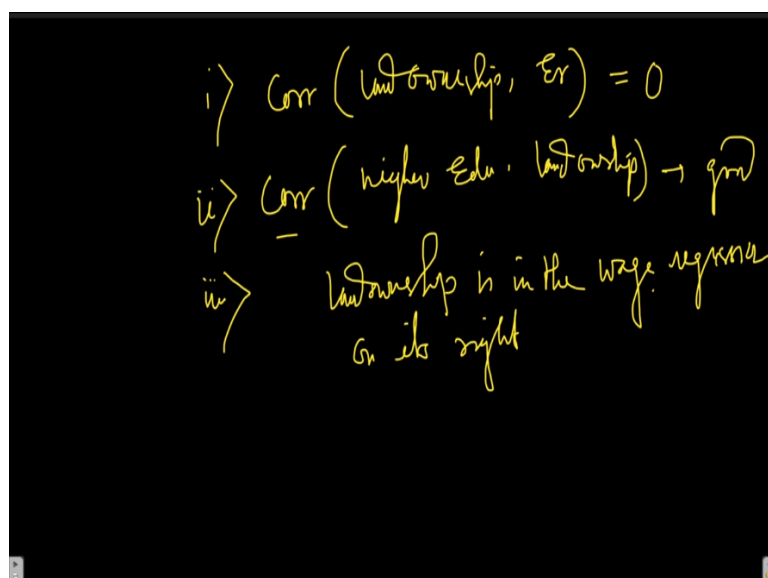 i> Corr (landownership, Er) = 0
ii> Corr (higher Edu. landownership) → good
iii> landownership is in the wage regression
on its right